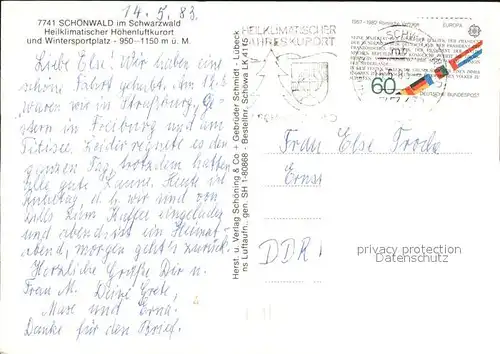 14.5.83
7741 SCHÖNWALD im Schwarzwald
Heilklimatischer Höhenluftkurort
und Wintersportplatz - 950-1150 m ü. M.
Liebe Else! Wir haben eine
schöne Fahrt gehabt. Am 12.
waren wir in Straßburg, Ge-
stern in Freiburg und am
Titisee. Leider regnete es den
ganzen Tag, trotzdem hatten
alle gute Laune. Heute ist
d. h. wir sind von
zum Kaffee eingeladen
und abends ist ein Heimat-
abend, morgen geht's zurück.
Herzliche Grüße Dir u.
Frau M. Deine Grete,
Maxe und Erna.
Danke für den Brief.
Herst. u. Verlag Schöning & Co + Gebrüder Schmidt - Lübeck
ns Luftaufn., gen. SH 1-80868 - Bestellnr. Schöwa LK 4116
HEILKLIMATISCHER
JAHRESKURORT
1957-1982
EUROPA
60
DEUTSCHE BUNDESPOST
Frau Else
Ernst
DDR
privacy protection
Datenschutz